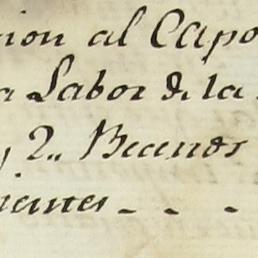 nion al Capo
a Labor de la
y 2,, Becerros
nientes - - -